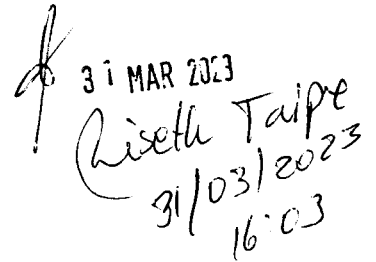 31 MAR 2023
Liseth Taipe
31/03/2023
16:03